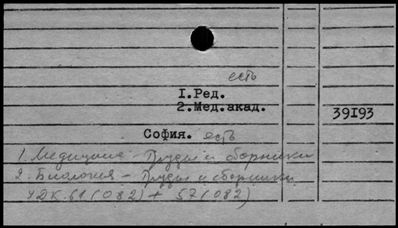 есть
1.Ред.
2.Мед.акад.
39193
София. есть
1. Медицина - Труды и сборники
2. Биология - Труды и сборники
УДК 61(082) + 57(082)